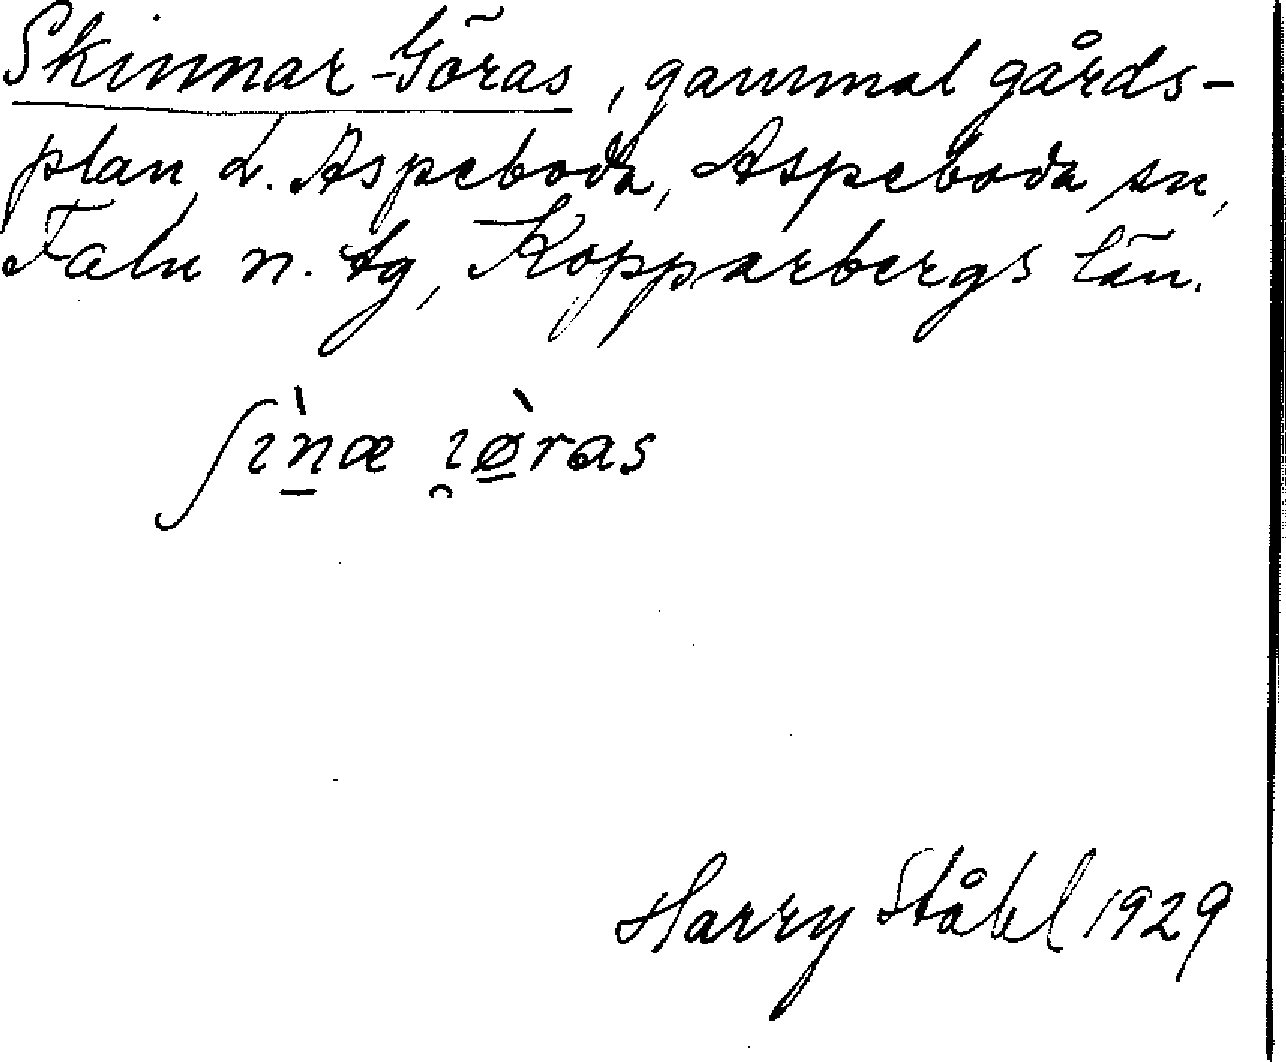 Skinnar-Göras, gammal gårds-
plan, L. Aspeboda, Aspeboda sn,
Falu n. tg, Kopparbergs län.
ʃìn̠æ ı̯ø̠̀ras
Harry Ståhl 1929